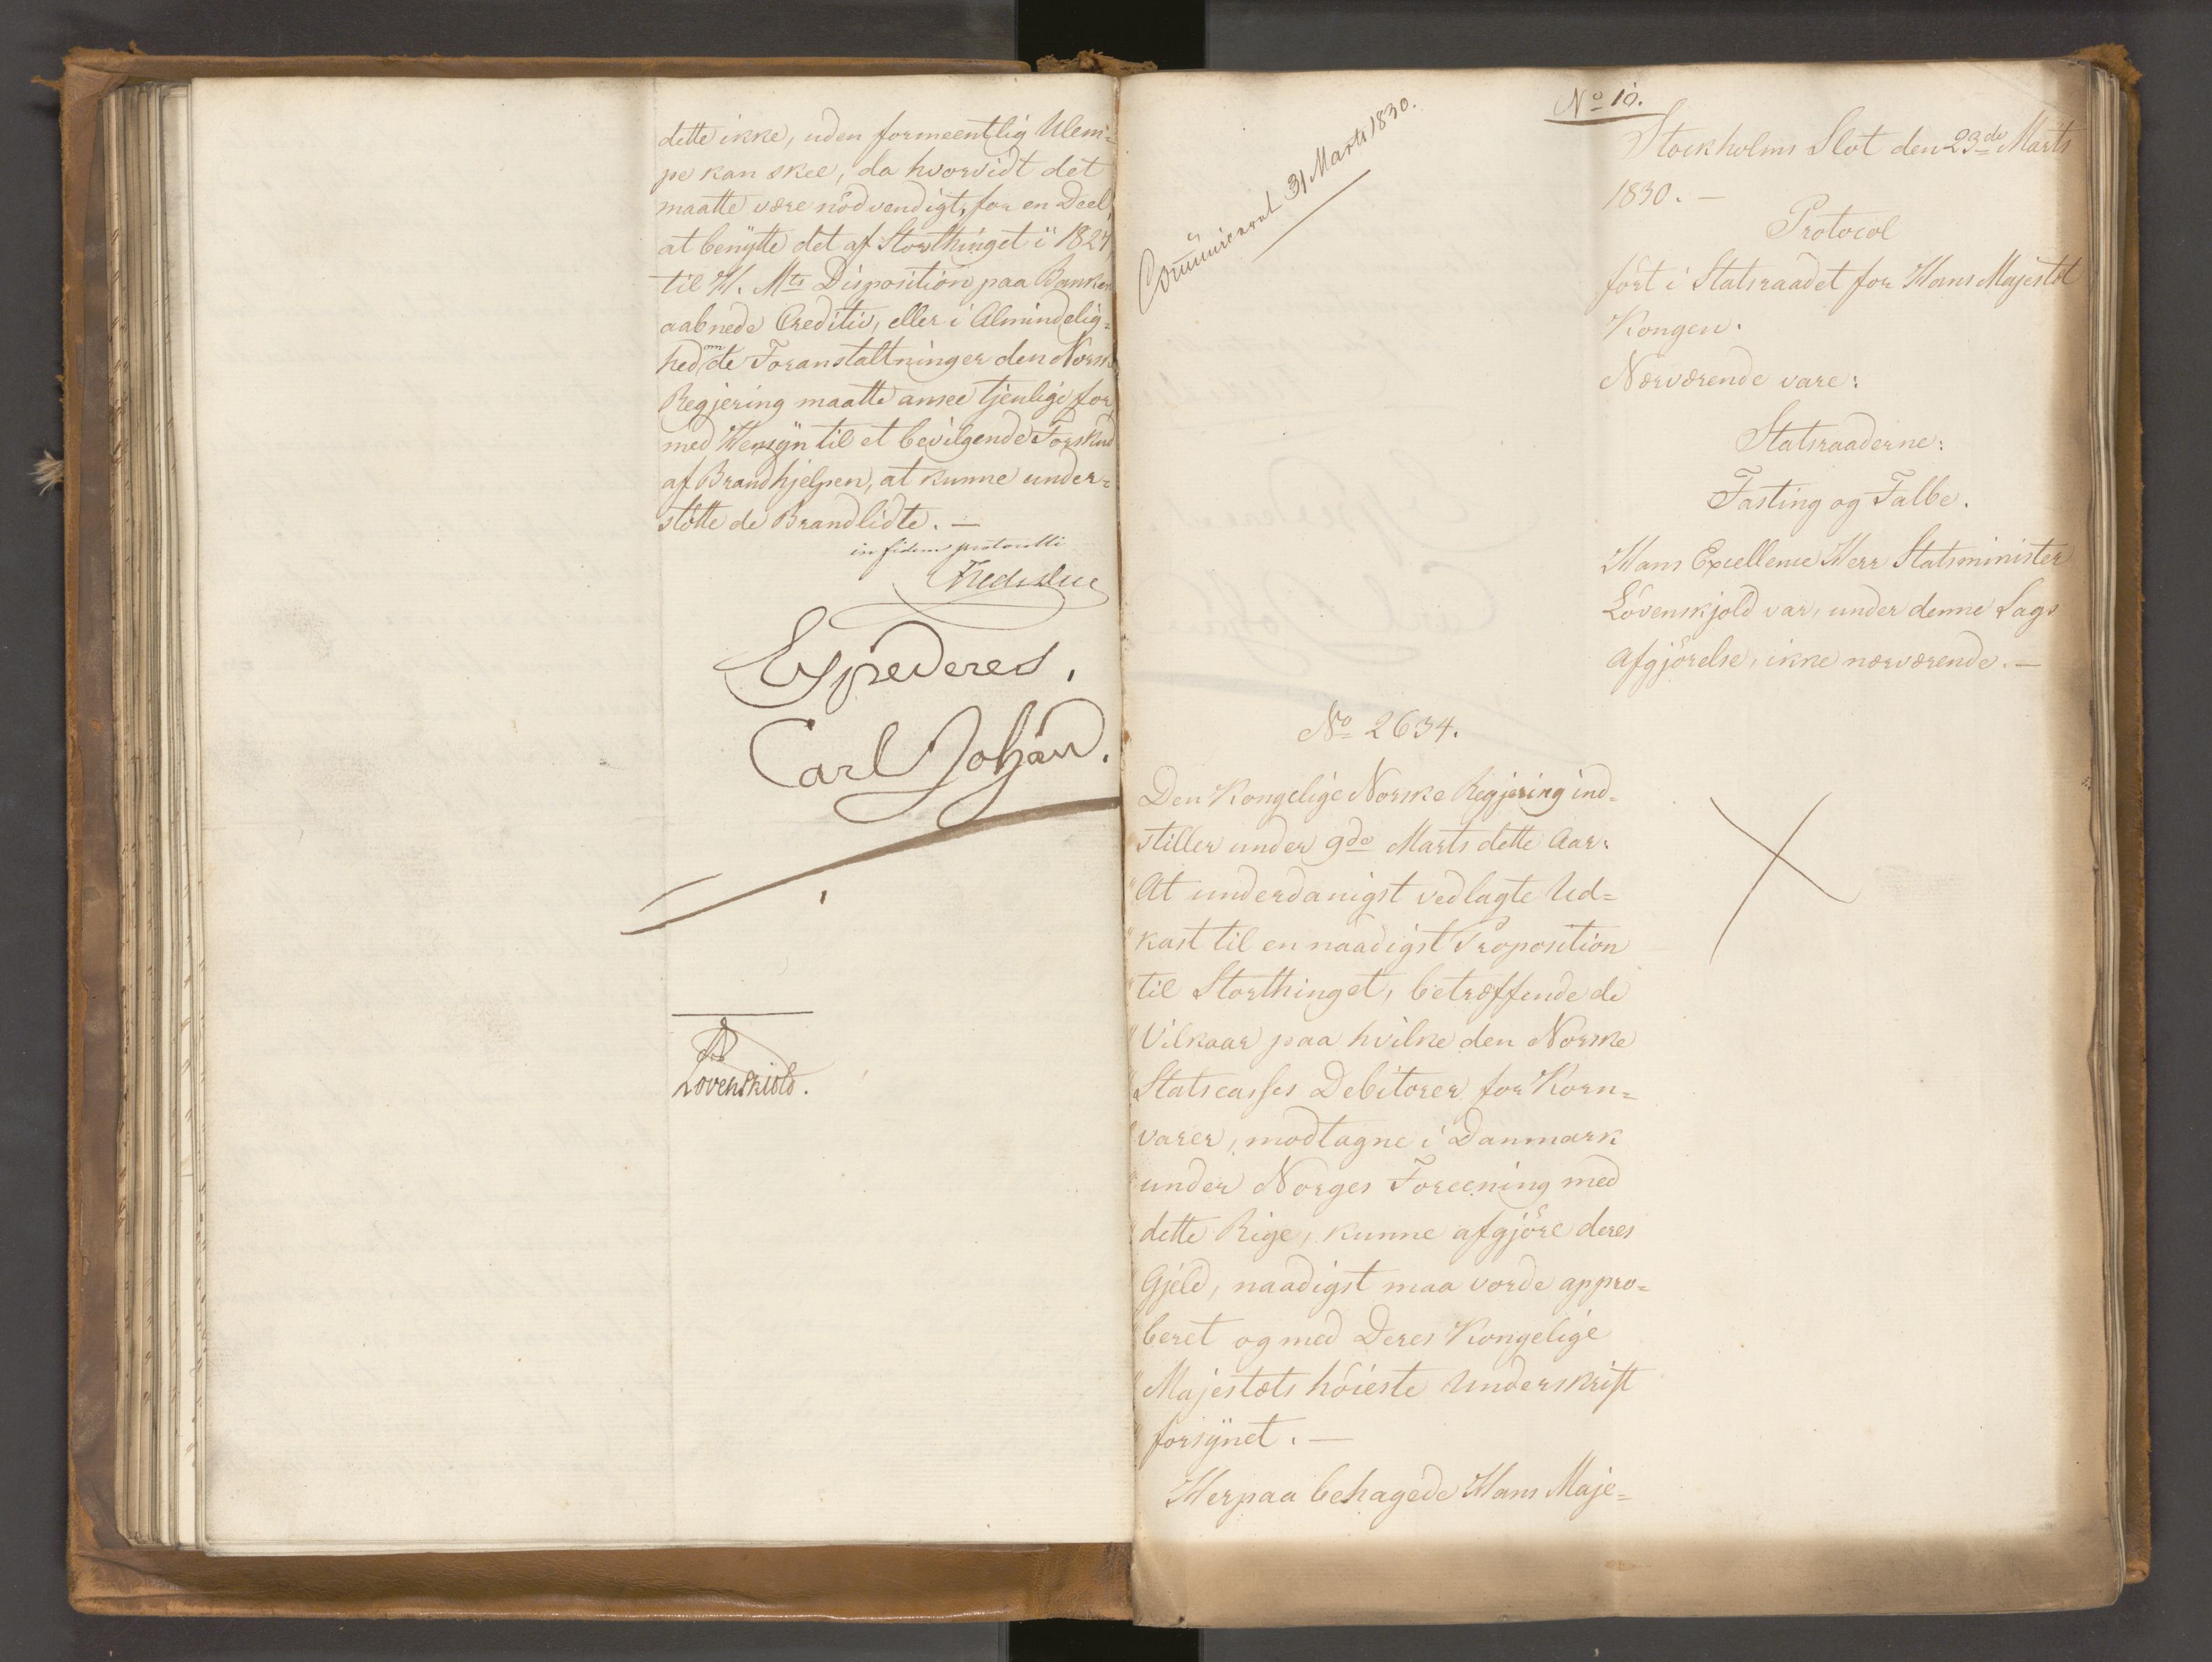 dette ikke, uden formeentlig Ulem=
pe kan skee, da hvorvidt det
maatte være nödvendigt, for en Deel,
at benytte det af Storthinget i 1827,
til H. Mts Disposition paa Banken
aabnede Creditiv, eller i Almindelig=
hed om de Foranstaltninger den Norske
Regjering maatte ansee tjenlige for,
med Hensyn til et bevilgende Forskud
af Brandhjelpen, at kunne under=
stötte de Brandlidte. —
in fidem protocolli
Fredr Due
Expederes.
Carl Johan.
Lövenskiold.
No 10.
Communiceret 31 Marts 1830.
Stockholms Slot den 23de Marts
1830. —
Protocol
fört i Statsraadet for Hans Majestæt
Kongen.
Nærværende vare:
Statsraaderne:
Fasting og Falbe.
Hans Excellence Herr Statsminister
Lövenskjold var, under denne Sags
Afgjörelse, ikke nærværende. —
No 2634.
Den Kongelige Norske Regjering ind=
stiller under 9de Marts dette Aar:
"At underdanigst vedlagte Ud=
"kast til en naadigst Proposition
"til Storthinget, betræffende de
"Vilkaar paa hvilke den Norske
"Statscasses Debitorer for Korn=
"varer, modtagne i Danmark
"under Norges Foreening med
"dette Rige, kunne afgjöre deres
"Gjeld, naadigst maa vorde appro=
"beret og med Deres Kongelige
"Majestæts höieste Underskrift
"forsynet. —
Herpaa behagede Hans Maje=